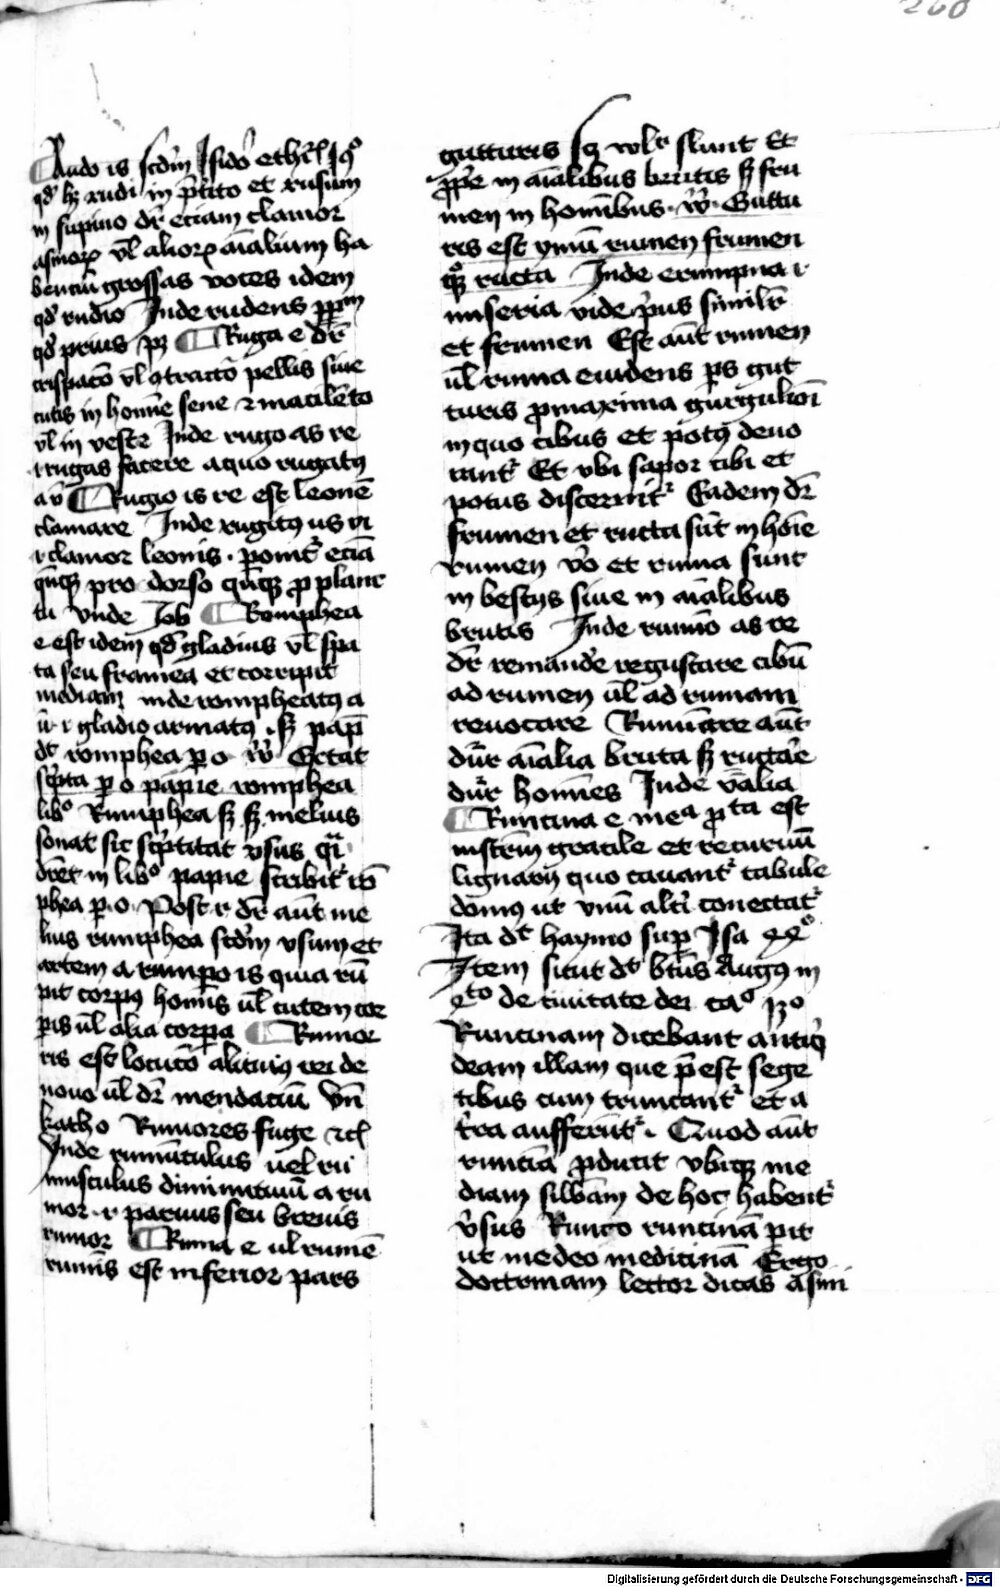 260
Rudo is scdm Isido ethil sqo
qd hz rudi in ptito et rusum
in supino dr eciam clamor
asinorum vl aliorum aialium ha
bencium grossas voces idem
qd rudio Inde rudens
qd prius pz Ruga e dr
crispaco vl contracco pellis siue
cutis in homine sene et macilento
vl in veste Inde rugo as re
i rugas facere a quo rugatus
a um Rugio is re est leonem
clamare Inde rugitus us ui
i clamor leonis ponitur eciam
quandoque pro dorso quandoque pro planc
tu vnde Job Romphea
e est idem qd gladius vl spa
ta seu framea et corripit
mediam inde rompheatus a
um i gladio armatus sz papi
dt romphea per o Ectat
scpta per o papie romphea
libo Rumphea sz melius
sonat sic scptitat vsus qui
dret in libo papie scribitur ro
phea per o Post r dr aut me
lius rumphea scdm vsum et
artem a rumpo is quia rum
pit corpus hominis vl cutem cor
pis vl alia corpora Rumor
ris est locuco alicuius rei de
nouo vl dr mendacium Vn
katho Rumores fuge etc
Inde rumunculus uel ru
musculus diminutiuum a ru
mor i paruus seu breuis
rumor Ruma e ul rumen
ruminis est inferior pars
gutturis et
prope in aialibus brutis sz fru
men in hominibus Guttu
ris est ymum rumen frumen
quoque ructa Inde erumpna i
miseria vide prius similiter
et frumen Est aut rumen
ul ruma euidens pars gut
turis proxima gurgulioni
in quo cibus et potus deuo
rantur Et vbi sapor cibi et
potus discernitur Eadem dr
frumen et ructa sunt in hoie
rumen vero et ruma sunt
in bestijs siue in aialibus
brutis Inde rumino as re
dr remandere regustare cibum
ad rumen ul ad rumam
reuocare Ruminare aut
dicuntur aialia bruta sz ructare
dicuntur homines Inde
Runcina e media producta est
instrumentum gracile et recuruum
lignarij quo cauantur tabule
domus ut vnum alteri conectatur
Ita dt haymo super Isa
Item sicut dt btus Augus in
4to de ciuitate dei cao
Runcinam dicebant antiqui
deam illam que preest sege
tibus cum truncantur et a
terra aufferuntur Quod aut
runcina producit vbique me
diam sillabam de hoc habentur
versus Runco runcinam pit
ut medeo medicinam Ergo
doctrinam lector dicas a simi
Digitalisierung gefördert durch die Deutsche Forschungsgemeinschaft - DFG